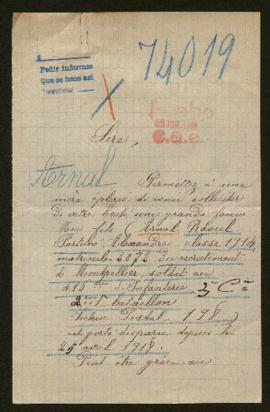 74019
Pedir informes
Que se hace así
Sire,
Arnal
Permettez à une
mère de venir solliciter
de votre une grande faveur
Mon fils (Arnal Raoul
Alexandre, classe 1914
matricule 2072 du recrutement
de Montpellier, soldat au
410me d'Infanterie 3e Cie
2me bataillon
Secteur Postal 198)
est porté disparu depuis le
25 avril 1918.
Peut être grâce au